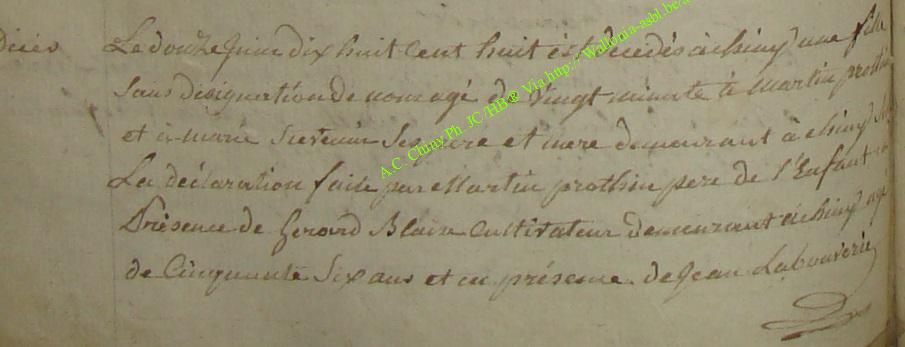 Décès
Le douze Juin dix huit Cent huit est decedés à chiny une fille
Sans désignation de nom agé de Vingt minute à Martin prothin
et à marie Ses père et mere demeurant à chiny
La déclaration faite par Martin prothin pere de l'Enfant
Présence de Gerard Blaise Cultivateur demeurant à chiny agé
de Cinquante Six ans et en présence de Jean Labouverie
A.C. Chiny Ph. JC/HB® Via http://Wallonia-asbl.be/